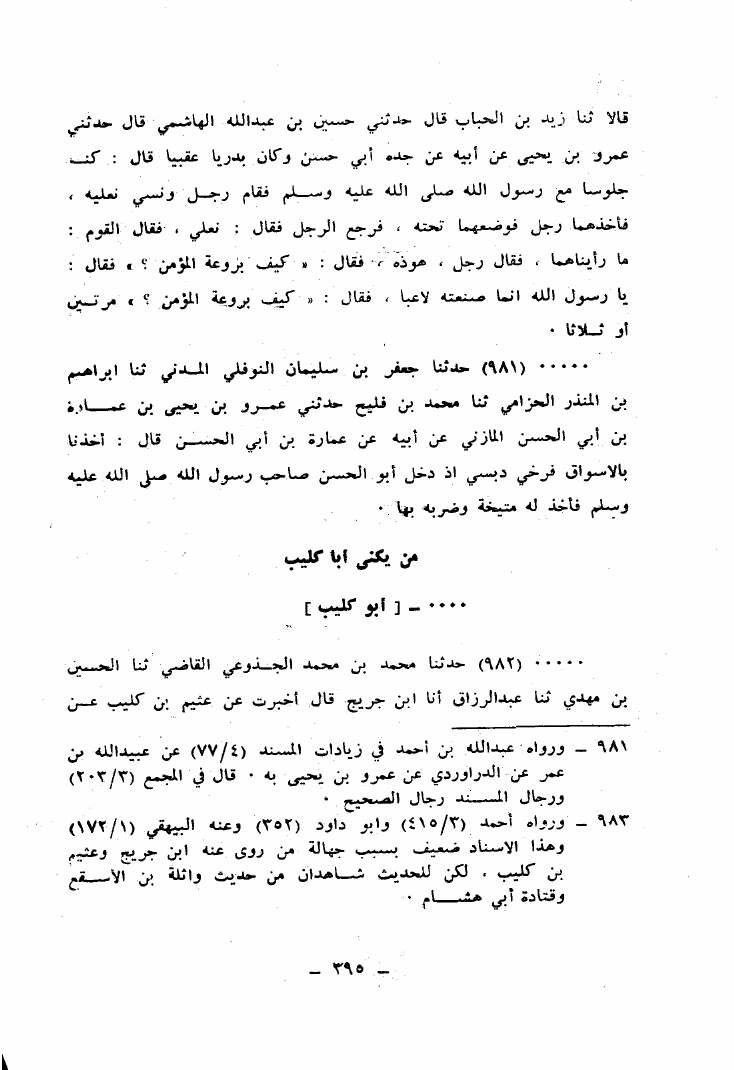 قالا ثنا زيد بن الحباب قال حدثني حسين بن عبدالله الهاشمي قال حدثني
عمرو بن يحيى عن أبيه عن جده أبي حسن وكان بدريا عقبيا قال : كنــا
جلوسا مع رسول الله صلى الله عليه وســلم فقام رجــل ونسي نعليه ،
فأخذهما رجل فوضعهما تحته ، فرجع الرجل فقال : نعلي ، فقال القوم :
ما رأيناهما ، فقال رجل ، هوذه ، فقال : « كيف بروعة المؤمن ؟ » فقال :
يا رسول الله انما صنعته لاعبا ، فقال : « كيف بروعة المؤمن ؟ » مرتــين
أو ثــلاثا ٠
٠٠٠٠٠ (٩٨١) حدثنا جعفر بن سليمان النوفلي المــدني ثنا ابراهيم
بن المنذر الحزامي ثنا محمد بن فليح حدثني عمــرو بن يحيى بن عمــارة
بن أبي الحسن المازني عن أبيه عن عمارة بن أبي الحســـن قال : أخذنا
بالاسواق فرخي دبسي اذ دخل أبو الحسن صاحب رسول الله صلى الله عليه
وسلم فأخذ له متيخة وضربه بها ٠
من يكنى أبا كليب
٠٠٠٠ ــ [ أبو كليب ]
٠٠٠٠٠ (٩٨٢) حدثنا محمد بن محمد الجــذوعي القاضي ثنا الحسين
بن مهدي ثنا عبدالرزاق أنا ابن جريج قال أخبرت عن عثيم بن كليب عــن
٩٨١ ــ ورواه عبدالله بن أحمد في زيادات المسند (٧٧/٤) عن عبيدالله بن
عمر عن الدراوردي عن عمرو بن يحيى به ٠ قال في المجمع (٢٠٣/٣)
ورجال المســـند رجال الصحيح ٠
٩٨٣ ــ ورواه أحمد (٤١٥/٣) وابو داود (٣٥٢) وعنه البيهقي (١٧٢/١)
وهذا الاسناد ضعيف بسبب جهالة من روى عنه ابن جريج وعثيم
بن كليب ، لكن للحديث شــاهدان من حديث واثلة بن الأســـقع
وقتادة أبي هشـــام ٠
ــ ٣٩٥ ــ